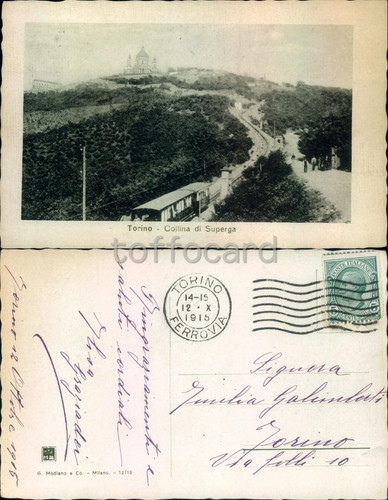 Torino - Collina di Superga
toffocard
Torino 12 Ottobre 1915
Ringraziamenti e
saluti cordiali
TORINO
14-15
12 · X
1915
FERROVIA
POSTE ITALIANE
Signora
Emilia Galimberti
Torino
Via 10
G. Modiano e Co. - Milano.